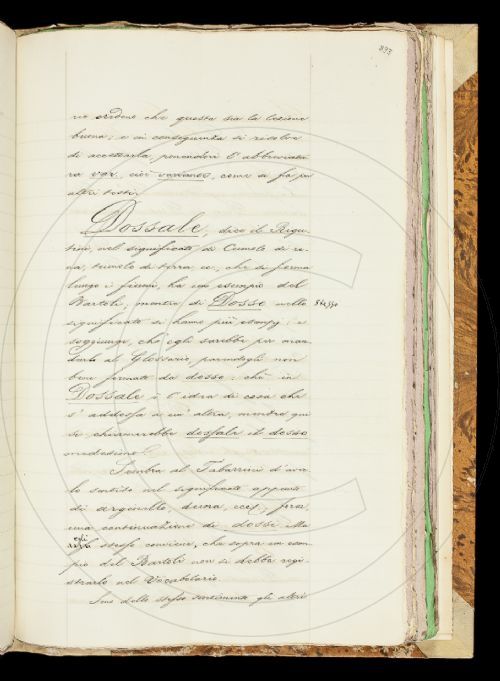 893
rio vedono che questa sia la lezione
buona; e in conseguenza si risolve
di accettarla, ponendovi l'abbreviatu
ra var. cioè variante, come si fa per
altri testi.
Dossale, dice il Rigu-
tini, nel significato di Cumolo di re-
na, tumolo di terra ec., che si forma
lungo i fiumi, ha un esempio del
Bartoli, mentre di Dosso nello
significato si hanno più esempj; e
soggiunge, che egli sarebbe per man-
darlo al Glossario, parendogli non
bene formato da dosso; chè in
Dossale è l'idea di cosa che
s'addossa a un'altra, mentre qui
si chiamerebbe dossale il dosso
medesimo.
Sembra al Tabarrini d'aver-
lo sentito nel significato appunto
di arginello, duna, ecc., forse
una continuazione di dossi. Ma
egli stesso conviene, che sopra un esem-
pio del Bartoli non si debba regi-
strarlo nel Vocabolario.
Sono dello stesso sentimento gli altri